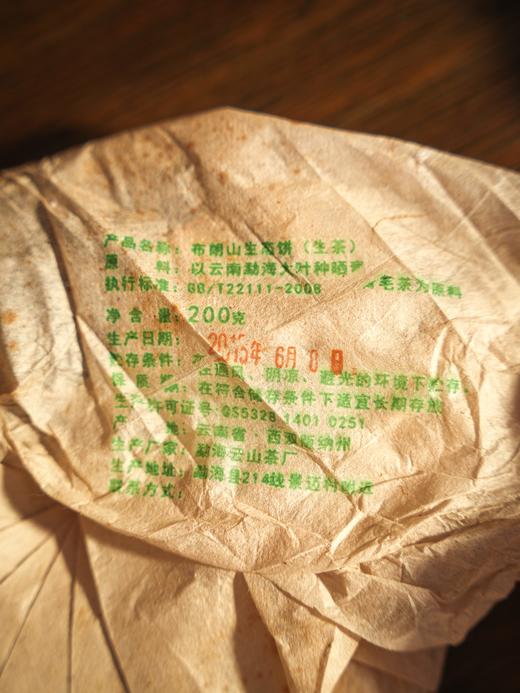 产品名称：布朗山生态饼（生茶）
原 料：以云南勐海大叶种晒青毛茶为原料
执行标准：GB/T22111-2008
净含量：200克
生产日期：2015年 6月 8日
贮存条件：在通风、阴凉、避光的环境下贮存
保质期：在符合储存条件下适宜长期存放
生产许可证号 QS5328 1401 0251
产 地：云南省·西双版纳州
生产厂家：勐海云山茶厂
生产地址：勐海县214线景迈村附近
联系方式：